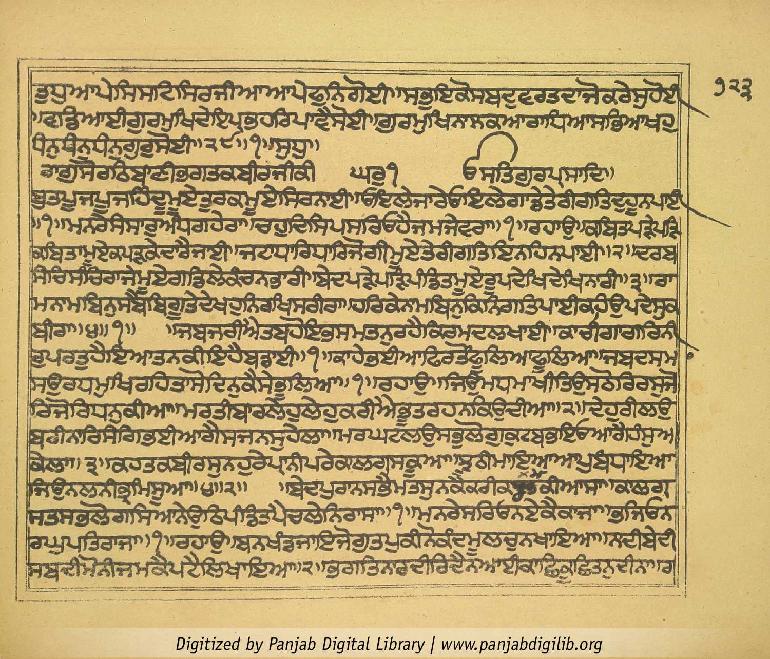 ੧੨੩
ਤੁਧੁਆਪੇਸਿਸਟਿਸਿਰਜੀਆਆਪੇਫੁਨਿਗੋਈ॥ਸਭੁਇਕੋਸਬਦੁਵਰਤਦਾਜੋਕਰੇਸੁਹੋਈ
॥ਵਡਿਆਈਗੁਰਮੁਖਿਦੇਇਪ੍ਰਭਹਰਿਪਾਵੈਸੋਈ॥ਗੁਰਮੁਖਿਨਾਨਕਆਰਾਧਿਆਸਭਿਆਖਹੁ
ਧੰਨੁਧੰਨੁਧੰਨੁਗੁਰੁਸੋਈ॥੨੯॥੧॥ਸੁਧੁ॥
ਰਾਗੁਸੋਰਠਿਬਾਣੀਭਗਤਕਬੀਰਜੀਕੀ ਘਰੁ੧ ੴਸਤਿਗੁਰਪ੍ਰਸਾਦਿ॥
ਬੁਤਪੂਜਪੂਜਹਿੰਦੂਮੂਏਤੁਰਕਮੂਏਸਿਰਨਾਈ॥ਓਇਲੇਜਾਰੇਓਇਲੇਗਾਡੇਤੇਰੀਗਤਿਦੁਹੂਨਪਾਈ
॥੧॥ਮਨਰੇਸੰਸਾਰੁਅੰਧਗਹੇਰਾ॥ਚਹੁਦਿਸਿਪਸਰਿਓਹੈਜਮਜੇਵਰਾ॥੧॥ਰਹਾਉ॥ਕਬਿਤਪੜੇਪੜਿ
ਕਬਿਤਾਮੂਏਕਪੜਕੇਦਾਰੈਜਾਈ॥ਜਟਾਧਾਰਿਧਾਰਿਜੋਗੀਮੂਏਤੇਰੀਗਤਿਇਨਹਿਨਪਾਈ॥੨॥ਦਰਬੁ
ਸੰਚਿਸੰਚਿਰਾਜੇਮੂਏਗਡਿਲੇਕੰਚਨਭਾਰੀ॥ਬੇਦਪੜੇਪੜਿਪੰਡਿਤਮੂਏਰੂਪਦੇਖਿਦੇਖਿਨਾਰੀ॥੩॥ਰਾ
ਮਨਾਮਬਿਨੁਸਭੈਬਿਗੂਤੇਦੇਖਹੁਨਿਰਖਿਸਰੀਰਾ॥ਹਰਿਕੇਨਾਮਬਿਨੁਕਿਨਿਗਤਿਪਾਈਕਹਿਉਪਦੇਸੁਕ
ਬੀਰਾ॥੪॥੧॥ ॥ਜਬਜਰੀਐਤਬਹੋਇਭਸਮਤਨੁਰਹੈਕਿਰਮਦਲਖਾਈ॥ਕਾਚੀਗਾਗਰਿਨੀ
ਰੁਪਰਤੁਹੈਇਆਤਨਕੀਇਹੈਬਡਾਈ॥੧॥ਕਾਹੇਭਈਆਫਿਰਤੌਫੂਲਿਆਫੂਲਿਆ॥ਜਬਦਸਮਾ
ਸਉਰਧਮੁਖਿਰਹਤਾਸੋਦਿਨੁਕੈਸੇਭੂਲਿਆ॥੧॥ਰਹਾਉ॥ਜਿਉਮਧੁਮਾਖੀਤਿਉਸਠੋਰਿਰਸੁਜੋ
ਰਿਜੋਰਿਧਨੁਕੀਆ॥ਮਰਤੀਬਾਰਲੇਹੁਲੇਹੁਕਰੀਐਭੂਤੁਰਹਨਕਿਉਦੀਆ॥੨॥ਦੇਹੁਰੀਲਉ
ਬਰੀਨਾਰਿਸੰਗਿਭਈਆਗੈਸਜਨਸੁਹੇਲਾ॥ਮਰਘਟਲਉਸਭੁਲੋਗੁਕੁਟੰਬੁਭਇਓਆਗੈਹੰਸੁਅ
ਕੇਲਾ॥੩॥ਕਹਤਕਬੀਰਸੁਨਹੁਰੇਪ੍ਰਾਨੀਪਰੇਕਾਲਗ੍ਰਸਕੂਆ॥ਝੂਠੀਮਾਇਆਆਪੁਬੰਧਾਇਆ
ਜਿਉਨਲਨੀਭ੍ਰਮਿਸੂਆ॥੪॥੨॥ ॥ਬੇਦਪੁਰਾਨਸਭੈਮਤਸੁਨਕੈਕਰੀਕਰਮਕੀਆਸਾ॥ਕਾਲਗ੍ਰ
ਸਤਸਭਲੋਗਸਿਆਨੇਉਠਿਪੰਡਿਤਪੈਚਲੇਨਿਰਾਸਾ॥੧॥ਮਨਰੇਸਰਿਓਨਏਕੈਕਾਜਾ॥ਭਜਿਓਨ
ਰਘੁਪਤਿਰਾਜਾ॥੧॥ਰਹਾਉ॥ਬਨਖੰਡਜਾਇਜੋਗੁਤਪੁਕੀਨੋਕੰਦਮੂਲੁਚੁਨਖਾਇਆ॥ਨਾਦੀਬੇਦੀ
ਸਬਦੀਮੋਨੀਜਮਕੇਪਟੈਲਿਖਾਇਆ॥੨॥ਭਗਤਿਨਾਰਦੀਰਿਦੈਨਆਈਕਾਛਿਕੂਛਿਤਨੁਦੀਨਾ॥ਰਾ
Digitized by Panjab Digital Library | www.panjabdigilib.org